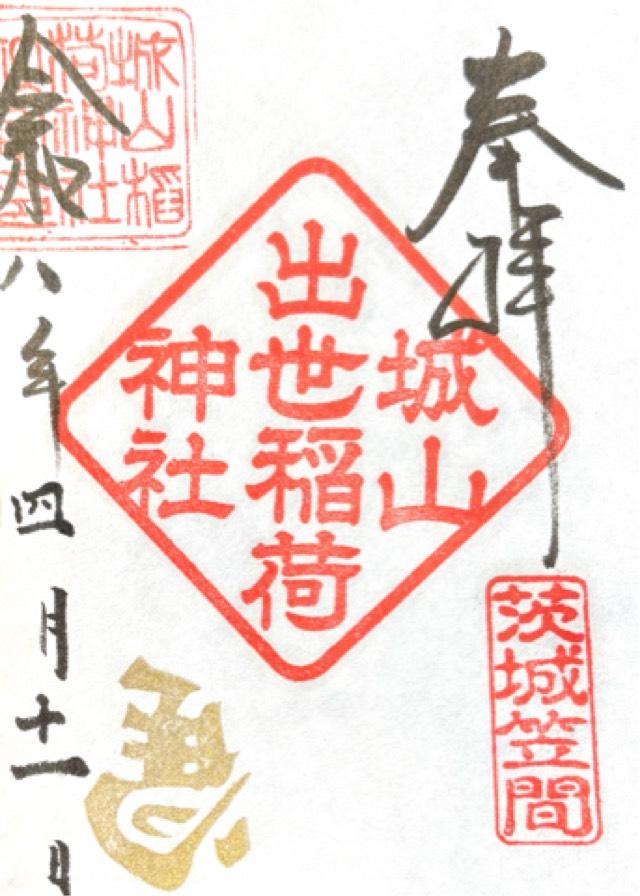 奉拝
茨城笠間
城山
出世稲荷
神社
城山稲
荷神社
令和八年四月十一日